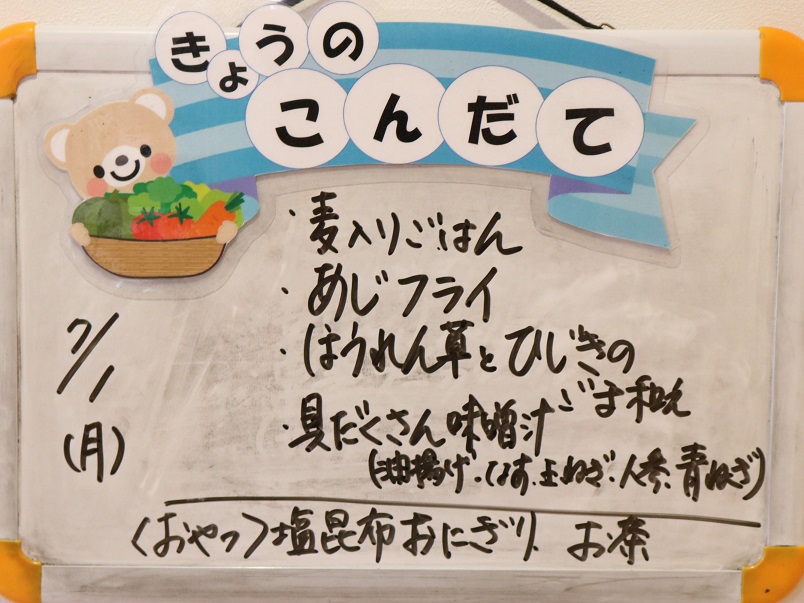 きょうの
こんだて
7/1
(月)
・麦入りごはん
・あじフライ
・ほうれん草とひじきの
ごま和え
・具だくさん味噌汁
(油揚げ・なす・玉ねぎ・人参・青ねぎ)
〈おやつ〉塩昆布おにぎり、お茶